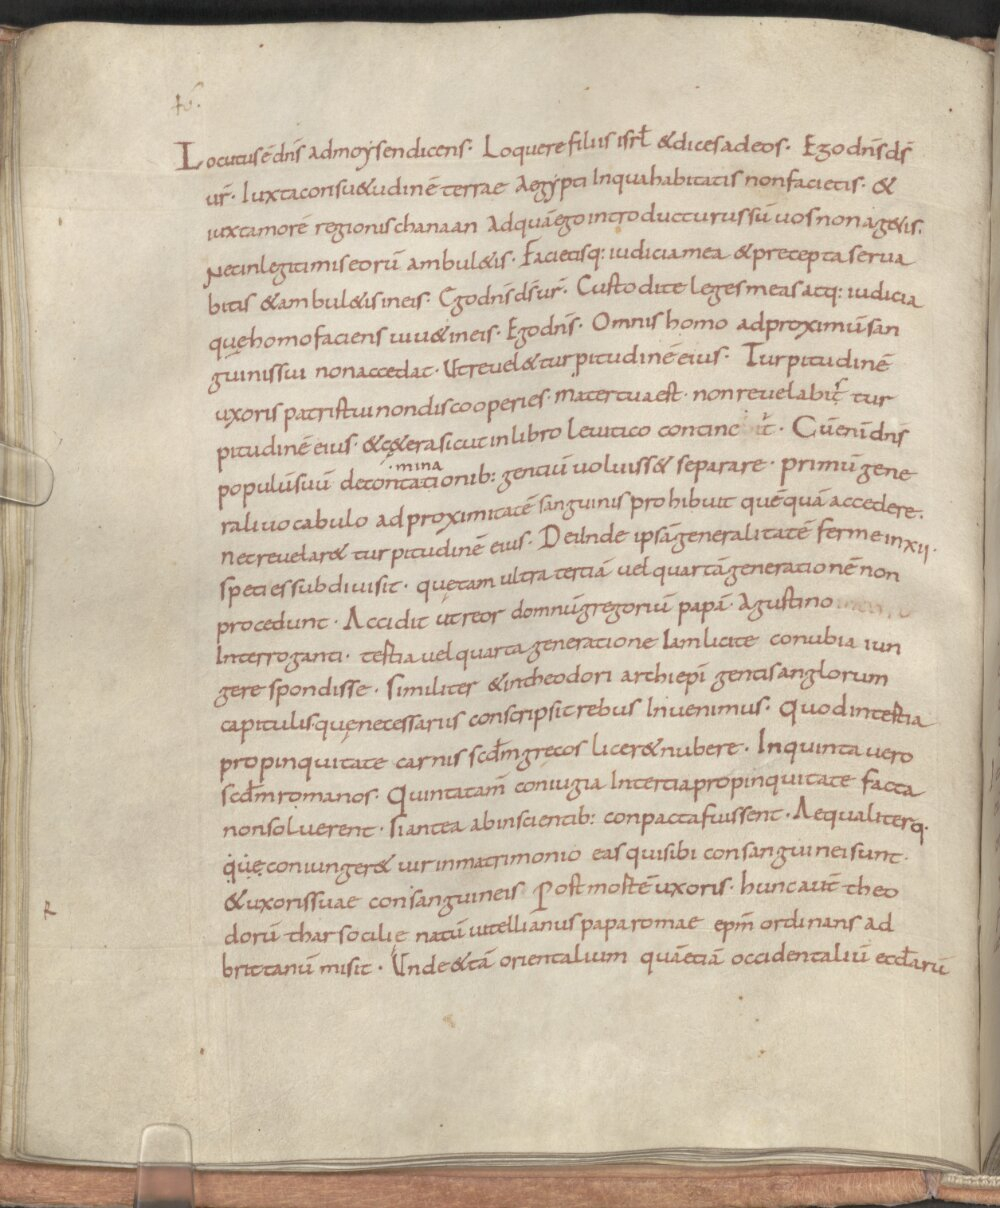 Locutus ē dn̄s ad moẏsen dicens · Loquere filiis isrl̄ & dices ad eos · Ego dn̄s ds̄
ur̄ · Iuxta consu&udinē terrae Aegẏpti In qua habitatis non facietis · &
iuxta morē regionis chanaan Ad quā ego introducturus sū uos non ag&is ·
Nec in legitimis eorū ambul&is · Facietisq: iudicia mea & precepta serua
bitis & ambul&is in eis · Ego dn̄s ds̄ ur̄ · Custodite leges meas atq: iudicia
quę homo faciens uiu& in eis · Ego dn̄s · Omnis homo ad proximū san
guinis sui non accedat · Ut reuel& turpitudinē eius · Turpitudinē
uxoris patris tui non discooperies · mater tua est · non reuelabit̄ tur
pitudinē eius · & c&era sicut in libro leuitico contine it̄ · Cū enī dn̄s
populū suū de contationib: gentiū uoluiss& separare · primū gene
mina
rali uocabulo ad proximitatē sanguinis prohibuit quēquā accedere ·
nec reuelar& turpitudinē eius · Deinde ipsā generalitatē ferme in xii ·
species subdiuisit · quę tam ultra tertiā uel quartā generationē non
procedunt · Accidit ut reor domnū gregoriū papā · Agustino
Interroganti · tertia uel quarta generatione Iam licite conubia iun
gere spondisse · similiter & in theodori archiepī gentis anglorum
capitulis · quę necessariis conscripsit rebus Inuenimus · Quod in tertia
propinquitate carnis scd̄m grecos licer& nubere · In quinta uero
scd̄m romanos · Quin tatam̄ coniugia In tertia propinquitate facta
non soluerent · si antea ab inscientib: conpacta fuissent · Aequaliterq ·
quę coniunger& uir in matrimonio eas qui sibi consanguinei sunt ·
& uxoris suae consanguineis Post mortē uxoris · hunc aut̄ theo
dorū tharso cilię natū uitellianus papa romae epm̄ ordinans ad
brittanū misit · Unde & tā orientalium quā etiā occidentaliū eccl̄arū